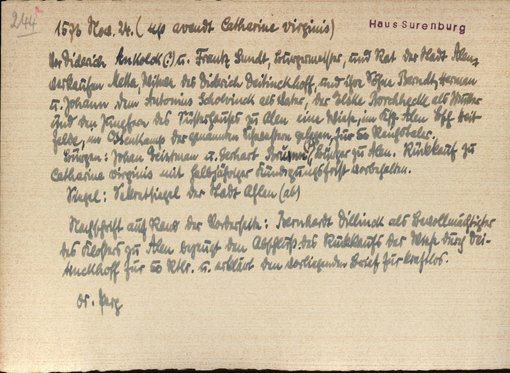 244
Haus Surenburg
1576 Nov. 24. (up avendt Catharine virginis)
Vor Diderich (?) u. Frantz Sundt, Bürgermeister, und Rat der Stadt Alen,
verkaufen Metta, Witwe des Diderich Deitinckhoff, und ihre Söhne Berndt, Herman
u. Johann dem Antonius Schotvinck als Vater, der Elske Borchheck als Mutter
und den Jungfern des Süsterhauses zu Alen eine Wiese, im Ksp. Alen Bff.
Felde, im Ossenkamp der genannten Schwestern gelegen, für 50 Reichstaler.
Bürgen: Johan Deitman u. Gerhart Bürger zu Alen. Rückkauf zu
Catharine virginis mit halbjähriger Kündigungsfrist vorbehalten.
Siegel: Sekretsiegel der Stadt Ahlen (ab)
Nachschrift auf Rand der Vorderseite: Bernhardt Dillinck als Bevollmächtigter
des Klosters zu Alen bezeugt den Abschluss des Rückkaufs der Wiese durch Dei-
tinckhoff für 50 Rtlr. u. erklärt den vorliegenden Brief für kraftlos.
Or. Perg